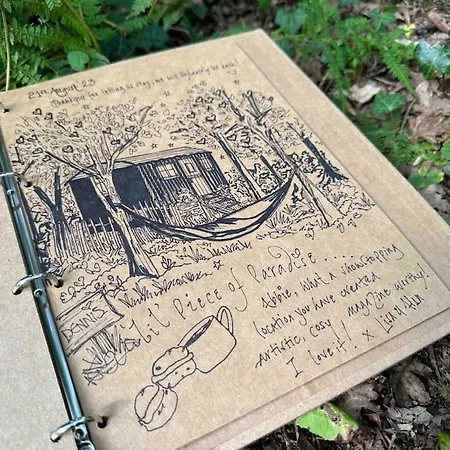 21st August 23
Thankyou for letting us stay, we will definitely be back!
DENNIS
Lil' Piece of Paradise....
Abbie, what a showstopping
location you have created
Artistic, cosy magazine worthy!
I love it! x